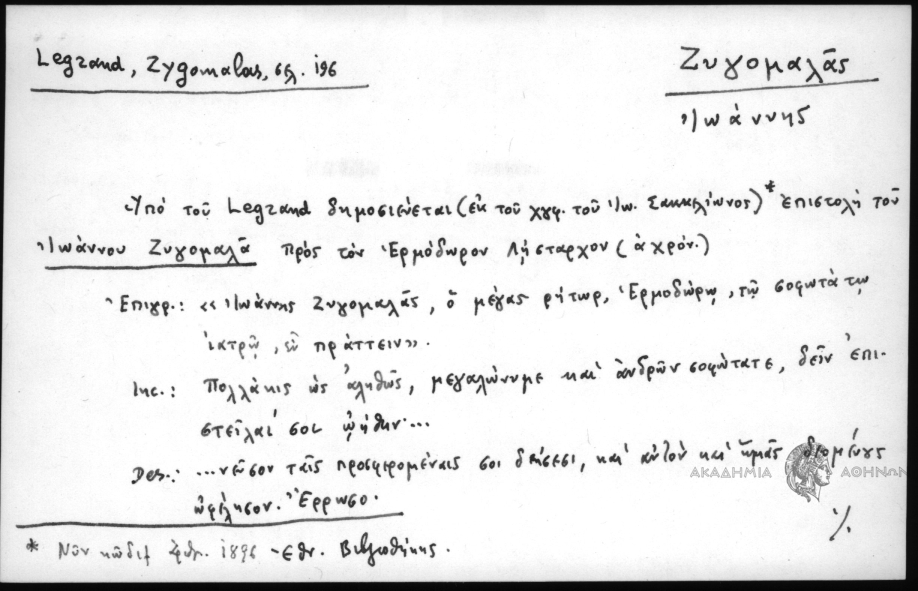 Legrand, Zygomalas, σελ. 196
Ζυγομαλᾶς
Ἰωάννης
Ὑπό τοῦ Legrand δημοσιεύεται (ἐκ τοῦ χγφ. τοῦ Ἰω. Σακκελίωνος)* ἐπιστολή τοῦ
Ἰωάννου Ζυγομαλᾶ πρὸς τὸν Ἑρμόδωρον Λήσταρχον (ἀχρόν.)
Ἐπιγρ.: «Ἰωάννης Ζυγομαλᾶς, ὁ μέγας ῥήτωρ, Ἑρμοδώρῳ, τῷ σοφωτάτῳ
ἰατρῷ, εὖ πράττειν».
Inc.: Πολλάκις ὡς ἀληθῶς, μεγαλώνυμε καὶ ἀνδρῶν σοφώτατε, δεῖν ἐπι-
στεῖλαί σοι ᾠήθην...
Des.: ...νεῦσον ταῖς προσφερομέναις σοι δεήσεσι, καὶ αὐτὸν καὶ ἡμᾶς
ὠφέλησον. Ἔρρωσο.
ΑΚΑΔΗΜΙΑ ΑΘΗΝΩΝ
./.
* Νῦν κῶδιξ ἀριθ. 1896 Ἐθν. Βιβλιοθήκης.